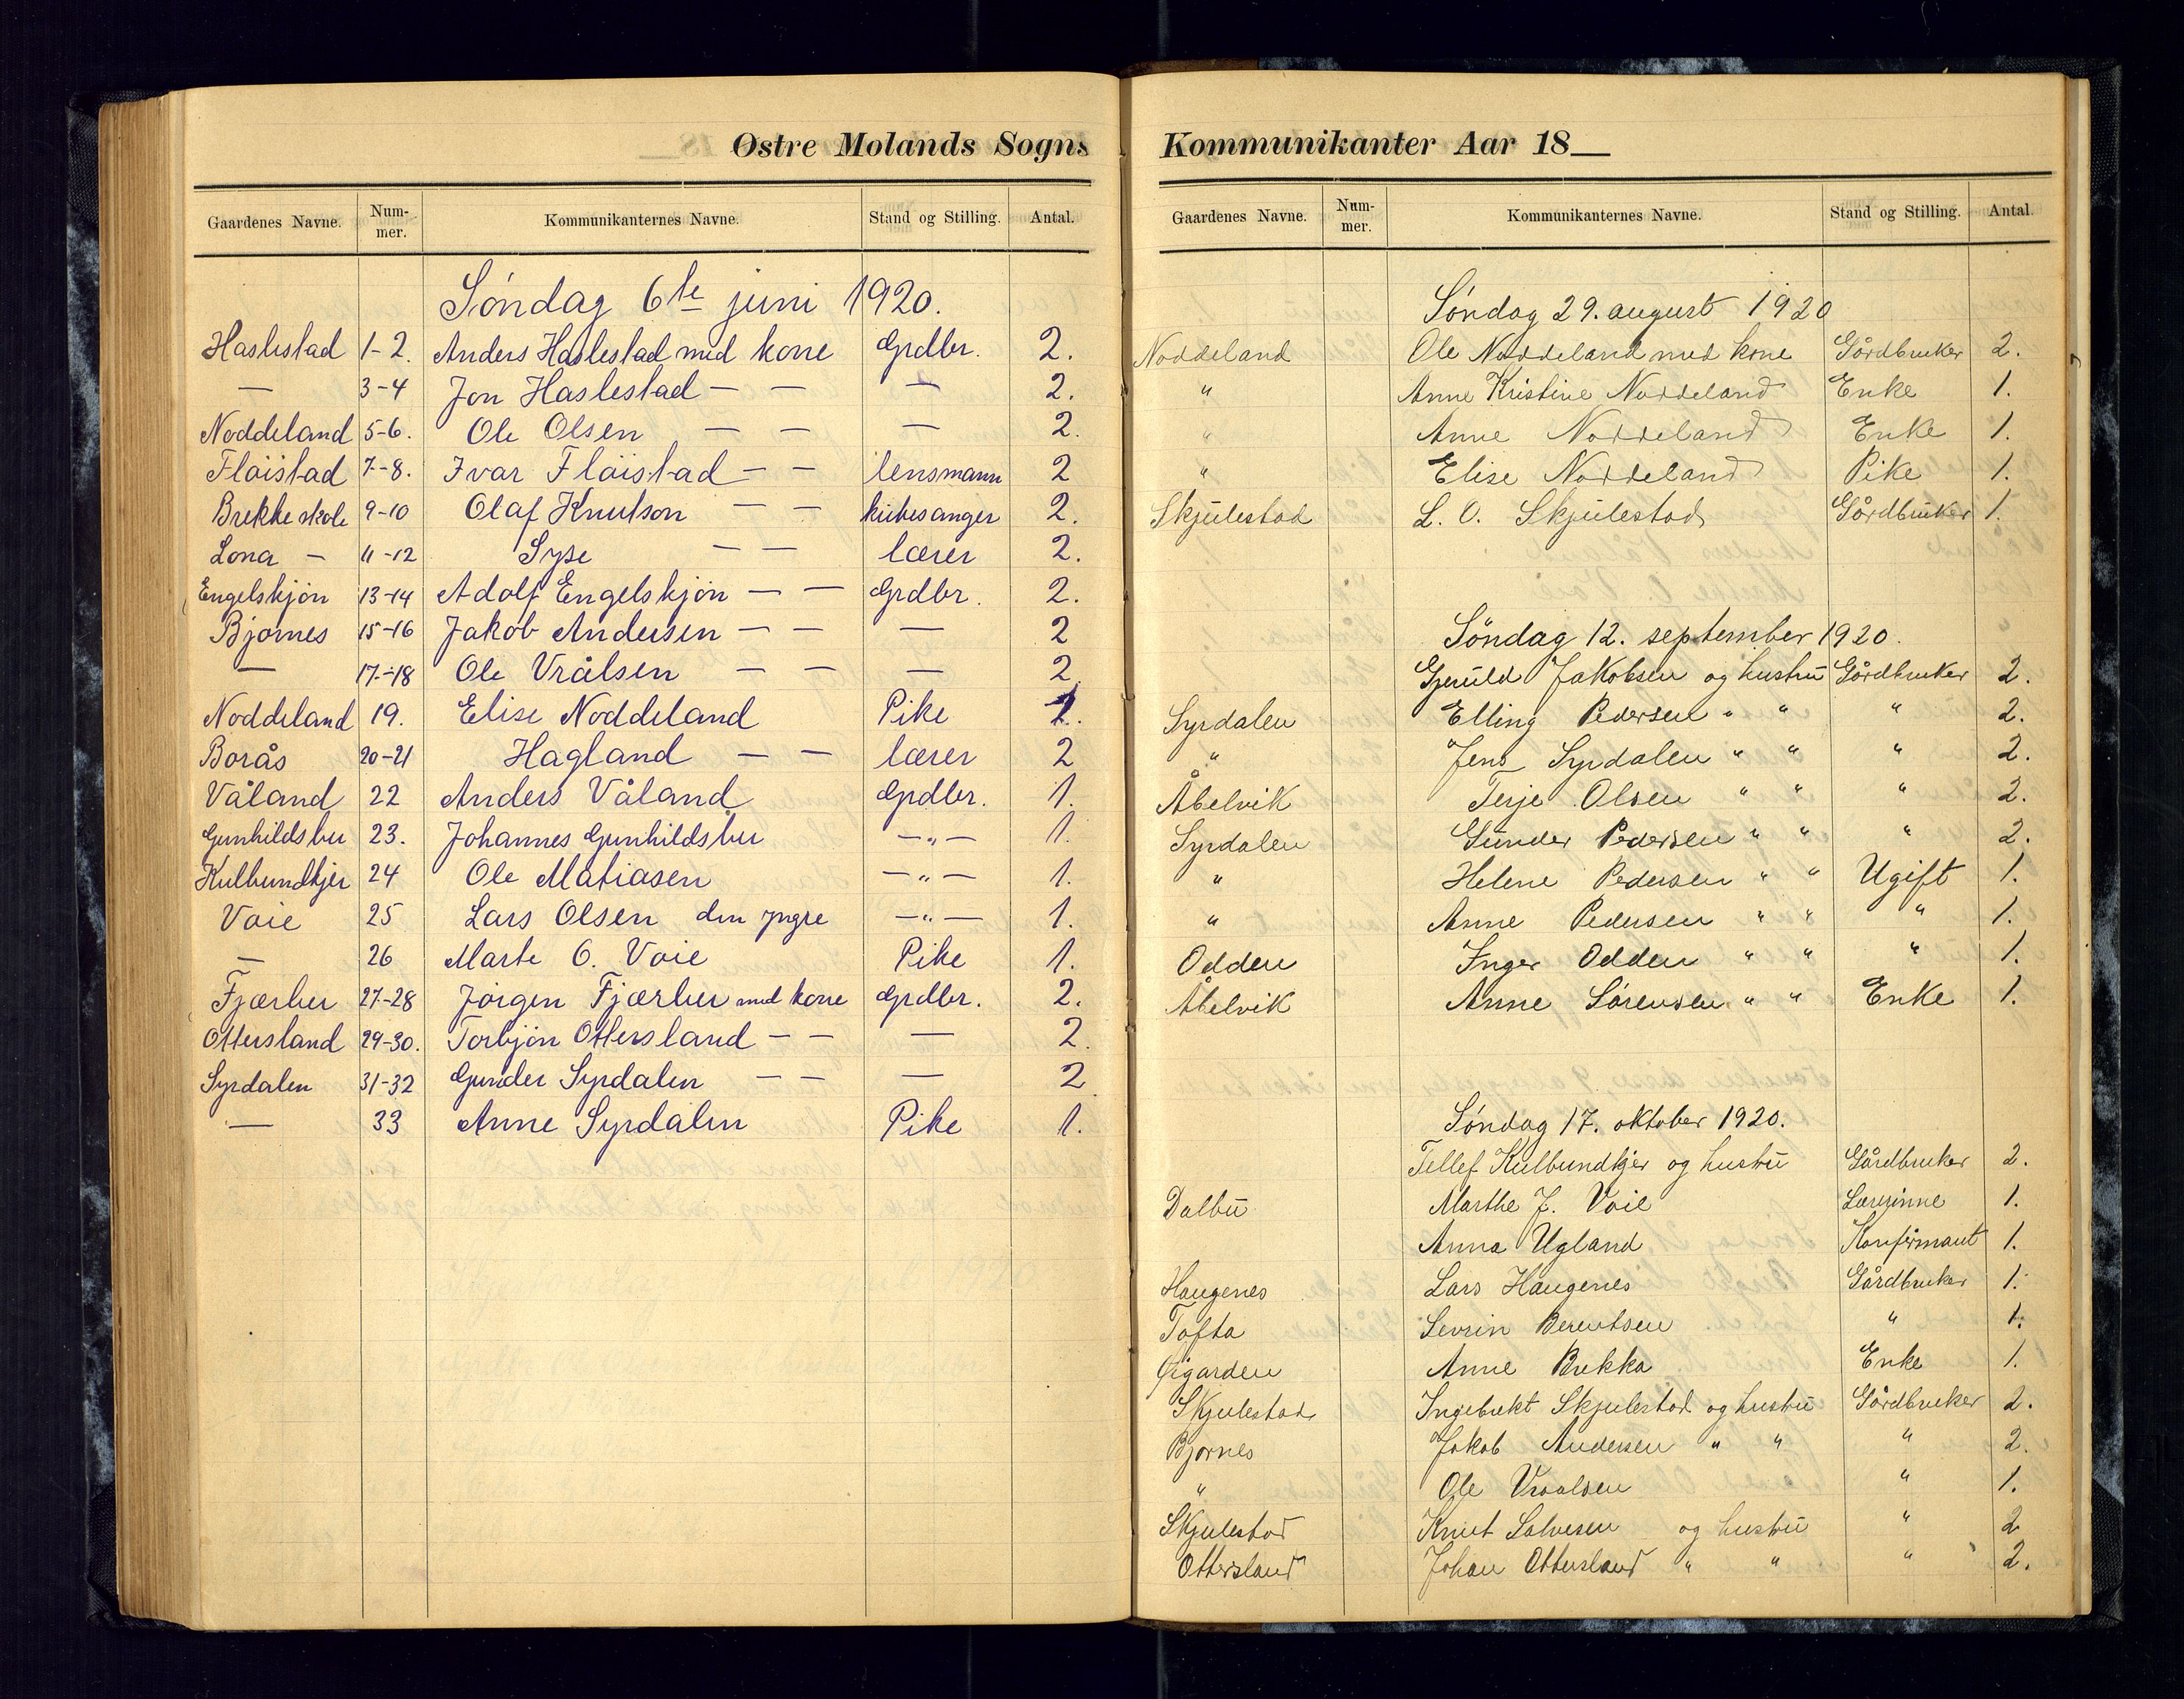 Østre Molands Sogns
Gaardenes Navne. Num-mer. Kommunikanternes Navne. Stand og Stilling. Antal.
Søndag 6te juni 1920.
Haslestad 1-2. Anders Haslestad med kone Grdbr. 2.
— 3-4 Jon Haslestad — — — 2.
Noddeland 5-6. Ole Olsen — — — 2.
Fløistad 7-8. Ivar Fløistad — — lensmann 2
Brekke skole 9-10 Olaf Knutson — — kirkesanger 2.
Lona — 11-12 Syse — — lærer 2.
Engelskjøn 13-14 Adolf Engelskjøn — — Grdbr. 2.
Bjornes 15-16 Jakob Andersen — — — 2
— 17-18 Ole Vrålsen — — — 2
Noddeland 19. Elise Noddeland Pike 1.
Borås 20-21 Hagland — — lærer 2
Våland 22 Anders Våland Grdbr. 1.
Gunhildsbu 23. Johannes Gunhildsbu —„— 1.
Kulbundkjer 24 Ole Matiasen —„— 1.
Voie 25 Lars Olsen den yngre —„— 1.
— 26 Marte O. Voie Pike 1.
Fjærbu 27-28 Jørgen Fjærbu med kone Grdbr. 2.
Ottersland 29-30. Torbjøn Ottersland — — — 2.
Syrdalen 31-32 Gunder Syrdalen — — — 2
— 33 Anne Syrdalen Pike 1.
Kommunikanter Aar 18__
Gaardenes Navne. Num-mer. Kommunikanternes Navne. Stand og Stilling. Antal.
Søndag 29. august 1920
Noddeland Ole Noddeland med kone Gårdbruker 2.
" Anne Kristine Noddeland Enke 1.
" Anne Noddeland Enke 1.
" Elise Noddeland Pike 1.
Skjulestad L. O. Skjulestad Gårdbruker 1.
Søndag 12. september 1920.
Gjeruld Jakobsen og hustru Gårdbruker 2.
Syrdalen Elling Pedersen " " " 2.
" Jens Syrdalen " " " 2.
Åbelvik Terje Olsen " " " 2.
Syrdalen Gunder Pedersen " " " 2.
" Helene Pedersen " " Ugift 1.
" Anne Pedersen " " " 1.
Odden Inger Odden " " " 1.
Åbelvik Anne Sørensen " " Enke 1.
Søndag 17. oktober 1920.
Tellef Kulbundkjer og hustru Gårdbruker 2.
Dalbu Marthe J. Voie Lærerinne 1.
Anna Ugland Konfirmant 1.
Haugenes Lars Haugenes Gårdbruker 1.
Tofta Sevrin Berentsen " 1.
Øigarden Anne Brekka Enke 1.
Skjulestad Ingebrekt Skjulestad og hustru Gårdbruker 2.
Bjornes Jakob Andersen " " " 2.
" Ole Vraalsen " 1.
Skjulestad Knut Salvesen og hustru " 2
Ottersland Johan Ottersland " " " 2.